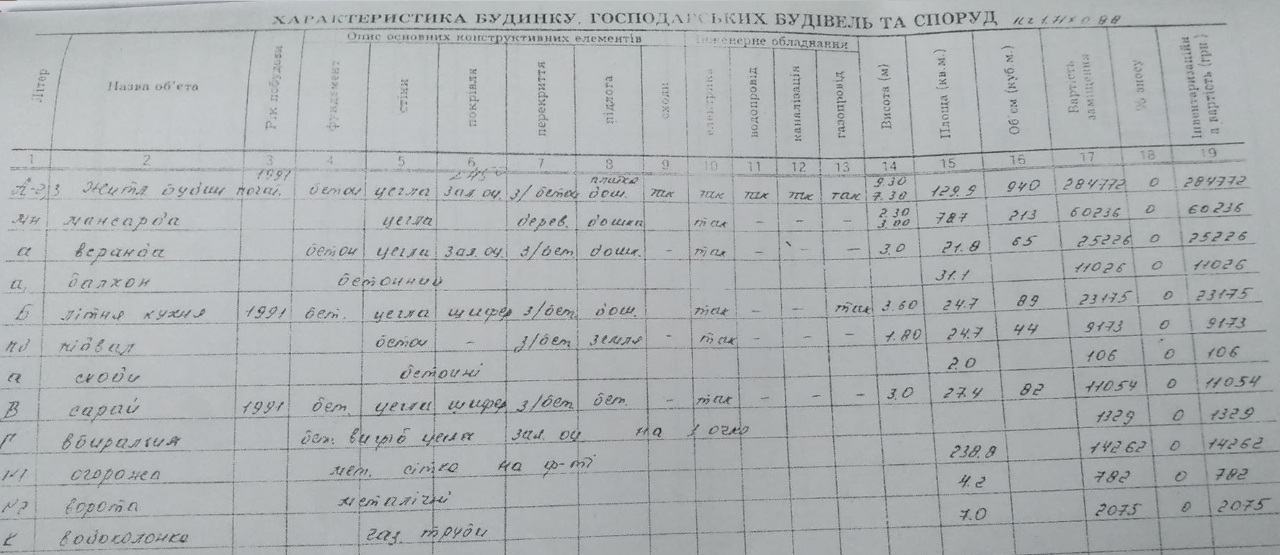 ХАРАКТЕРИСТИКА БУДИНКУ, ГОСПОДАРСЬКИХ БУДІВЕЛЬ ТА СПОРУД
Літер Назва об'єта Рік побудови Опис основних конструктивних елементів Інженерне обладнання Висота (м) Площа (кв.м.) Об'єм (куб.м.) Вартість заміщення % зносу Інвентаризаційна вартість (грн.)
фундамент стіни покрівля перекриття підлога сходи електрика водопровід каналізація газопровід
1 2 3 4 5 6 7 8 9 10 11 12 13 14 15 16 17 18 19
1991 плитка 9.30
А-2 бетон цегла зал. оц. з/бетон дош. так так так так так 7.30 129.9 940 284772 0 284772
мн мансарда цегла дерев. дошка так - - - 2.30 3.00 787 213 60236 0 60236
а веранда бетон цегла зал. оц. з/бет. дошк. - так - - - 3.0 21.8 65 25226 0 25226
а, балкон бетонний 31.1 11026 0 11026
Б літня кухня 1991 бет. цегла шифер з/бет. дош. так - - так 3.60 24.7 89 23175 0 23175
пд підвал бетон - з/бет земля - так - - - 1.80 24.7 44 9173 0 9173
а сходи бетонні 2.0 106 0 106
В сарай 1991 бет. цегла шифер з/бет бет. - так - - - 3.0 27.4 82 11054 0 11054
Г вбиральня бет. цегла зал. оц на 1 очко 1329 0 1329
N1 огорожа мет. сітка на ф-ті 238.8 14262 0 14262
N2 ворота металічні 4.2 782 0 782
К водоколонка газ. труби 7.0 2075 0 2075